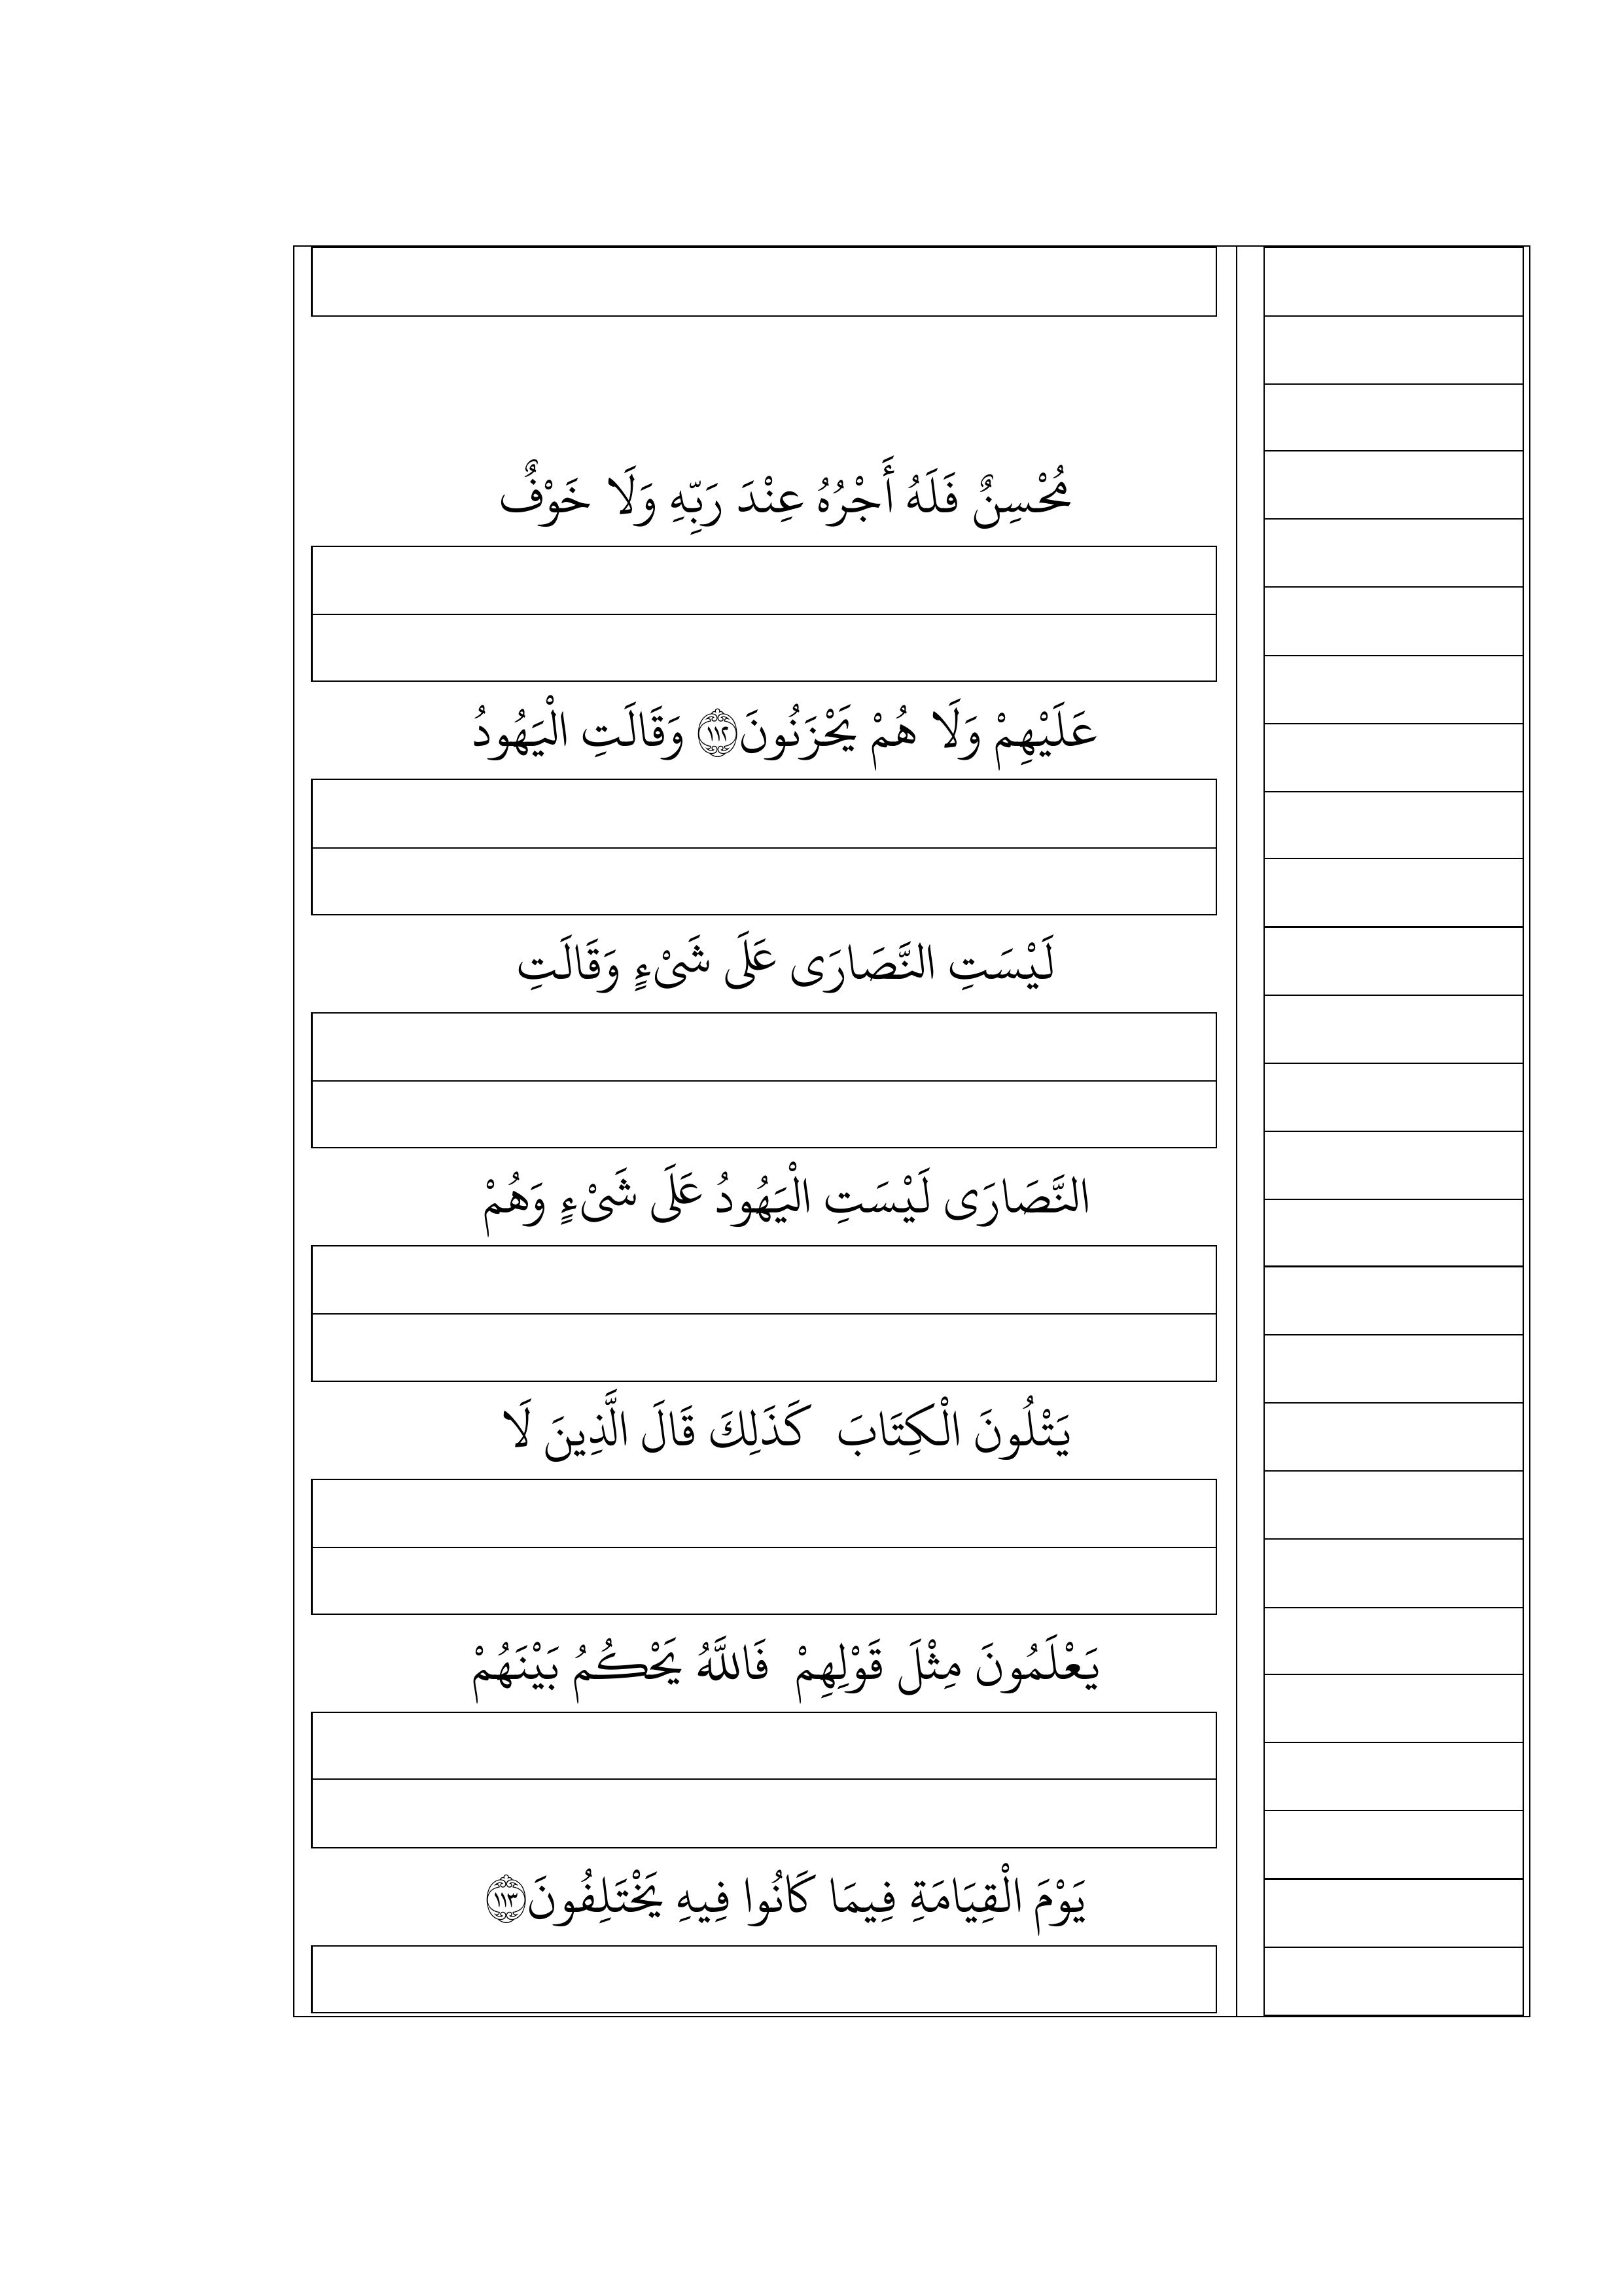 مُحْسِنٌ فَلَهُ أَجْرُهُ عِنْدَ رَبِّهِ وَلَا خَوْفٌ
عَلَيْهِمْ وَلَا هُمْ يَحْزَنُونَ ﴿١١٢﴾ وَقَالَتِ الْيَهُودُ
لَيْسَتِ النَّصَارَى عَلَى شَيْءٍ وَقَالَتِ
النَّصَارَى لَيْسَتِ الْيَهُودُ عَلَى شَيْءٍ وَهُمْ
يَتْلُونَ الْكِتَابَ كَذَلِكَ قَالَ الَّذِينَ لَا
يَعْلَمُونَ مِثْلَ قَوْلِهِمْ فَاللَّهُ يَحْكُمُ بَيْنَهُمْ
يَوْمَ الْقِيَامَةِ فِيمَا كَانُوا فِيهِ يَخْتَلِفُونَ ﴿١١٣﴾